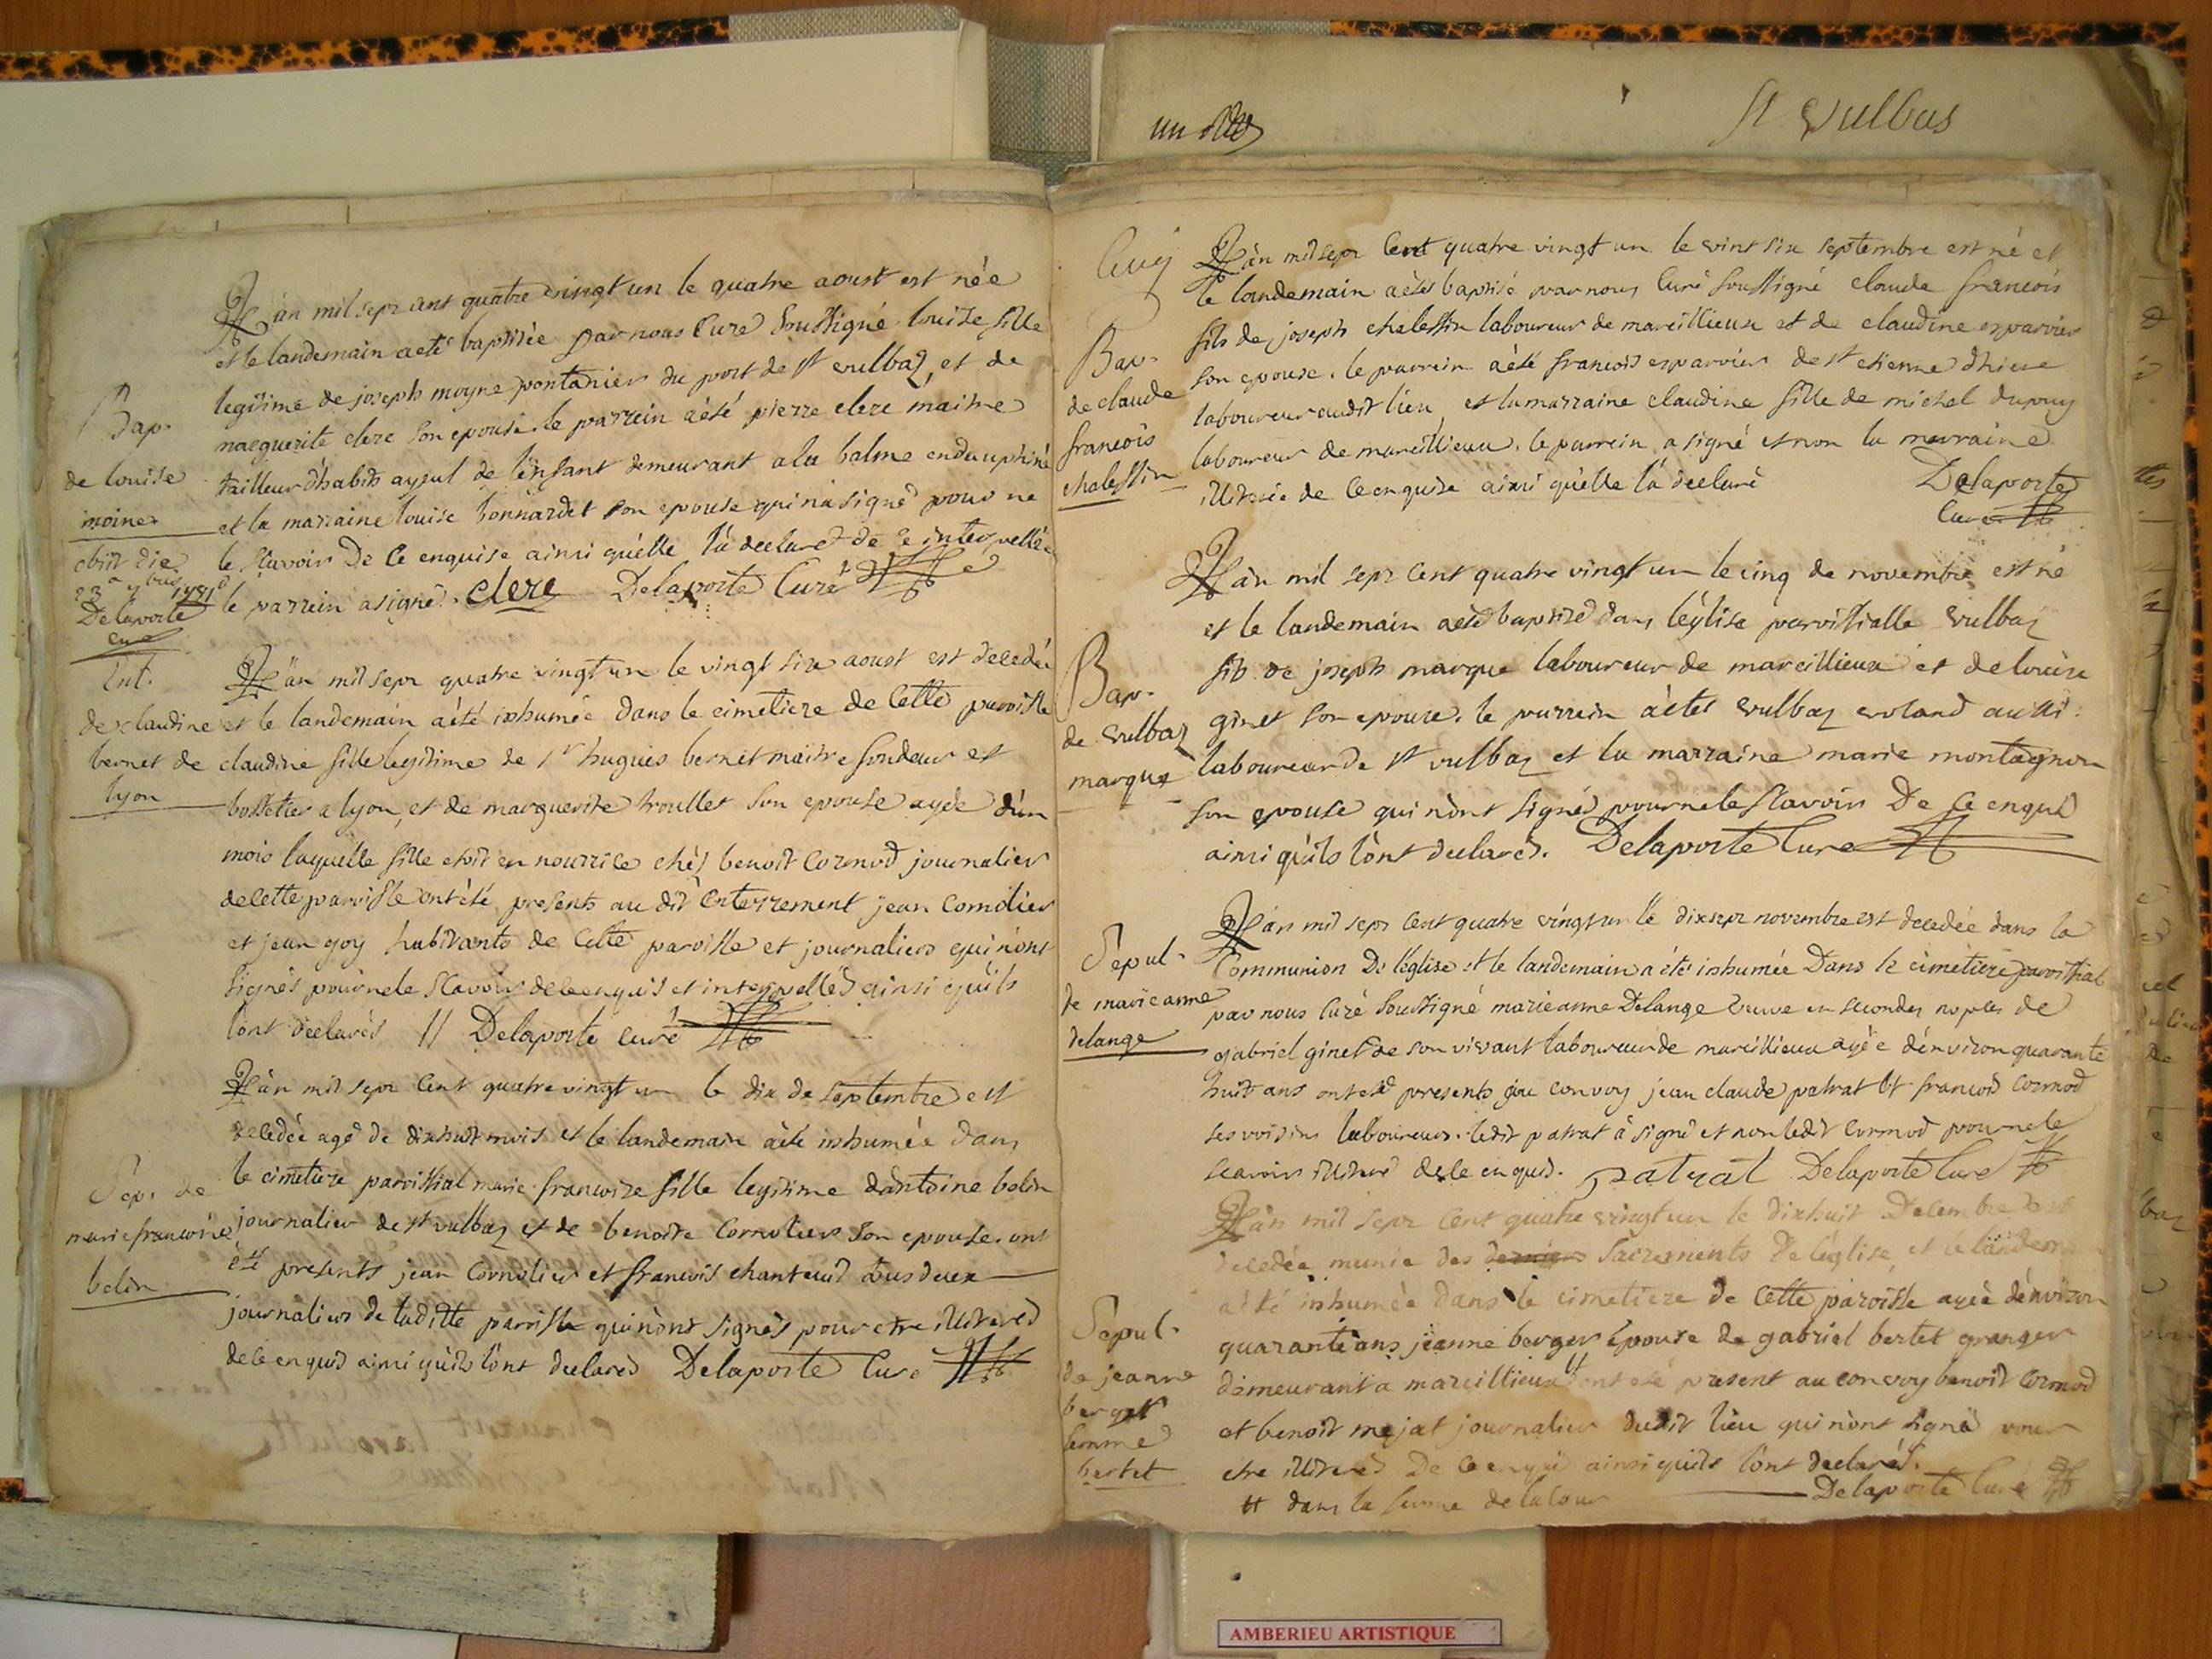 un rôlle
St Vulbas
L'än mil sept ant quatre vingt un le quatre aoust est née
et le landemain aeté baptisée par nous Curé Soussigné louise fille
legitime de joseph moyne pontanier du port de st vulbaz, et de
marguerite clerc son epouse. le parrein aèté pierre clerc maitre
tailleur d'habits ayeul de l'enfant demeurant a la balme en dauphiné
et la marraine louise bonnardet son epouse qui n'a signé pour ne
le scavoir De ce enquise ainsi qu'elle l'a declaré de ce interpellée
le parrein a signé. Clerc Delaporte Curé
Bap.
de louise
moine
obiit die
23a 7bris 1781
Delaporte
cur
L'än mil sept quatre vingt un le vingt six aoust est decedée
et le landemain aété inhumée dans le cimetiere de Cette paroisse
claudine fille legitime de sr hugues bernet maitre fondeur et
bossetier a lyon, et de marguerite troullet son epouse agée d'un
mois laquelle fille etoit en nourrice chès benoit Cormod journalier
de cette paroisse ont été presents au dit Enterrement jean Cornolier
et jean goy habitants de Cette paroisse et journaliers qui n'ont
signés pour ne le scavoir de ce enquis et interpellés ainsi qu'ils
l'ont declarés // Delaporte curé
Ent.
de claudine
bernet de
lyon
L'än mil sept Cent quatre vingt un le dix de septembre est
decedée agé de dixhuit mois et le landemain aèté inhumée dans
le cimetiere paroissial marie francoise fille legitime d'antoine belin
journalier de st vulbaz et de benoite Cornolier son epouse. ont
été presents jean Cornolier et francois chanteud tous deux
journaliers de la ditte paroisse qui n'ont signés pour etre illiterés
de ce enquis ainsi qu'ils l'ont declarés Delaporte Curé
Sep. de
marie francoise
belin
L'än mil sept Cent quatre vingt un le vint six septembre est né et
le landemain aètés baptisé par nous Curé soussigné claude francois
fils de joseph chalessin laboureur de marcillieux et de claudine esparvier
son epouse. le parrein aèté francois esparvier de st etienne d'hiere
laboureur audit lieu, et la marraine claudine fille de michel dupuy
laboureur de marcillieux. le parrein a signé et non la marraine
illiterée de Ce enquise ainsi qu'elle l'a declaré Delaporte
Curé
Bap.
de claude
francois
chalessin
L'än mil sept Cent quatre vingt un le cinq de novembre est né
et le landemain aeté baptisé dans l'église paroissialle vulbaz
fils de joseph marque laboureur de marcillieux et de louise
ginet son epouse. le parrein aètés vulbaz voland aussi
laboureur de st vulbaz et la marraine marie montagnon
son epouse qui n'ont signés pour ne le scavoir De ce enquis
ainsi qu'ils l'ont declarés. Delaporte Curé
Bap.
de vulbaz
marque
L'än mil sept Cent quatre vingt un le dixsept novembre est decedée dans la
Communion De l'église et le landemain a été inhumée Dans le cimetiere paroissial
par nous Curé Soussigné marieanne Delange veuve en secondes nopces de
gabriel ginet de son vivant laboureur de marcillieux agée d'environ quarante
huit ans ont eté presents au convoy jean claude patrat et francois Cormod
ses voisins laboureurs. ledit patrat a signé et non ledit Cormod pour ne le
scavoir illiteré de ce enquis. patrat Delaporte Curé
Sepul.
de marieanne
delange
L'än mil sept Cent quatre vingt un le dixhuit Decembre est
decedée munie des derniers Sacrements De l'église, et le landemain
aété inhumée dans le cimetiere de Cette paroisse agée d'environ
quarante ans jeanne berger epouse de gabriel bertet granger
demeurant a marcillieux # ont eté present au convoy benoit Cormod
et benoit majat journalier dudit lieu qui n'ont signé pour
etre illiterés De ce enquis ainsi qu'ils l'ont declarés.
# dans la ferme de la tour Delaporte Curé
Sepul.
de jeanne
berger
femme
bertet
AMBERIEU ARTISTIQUE